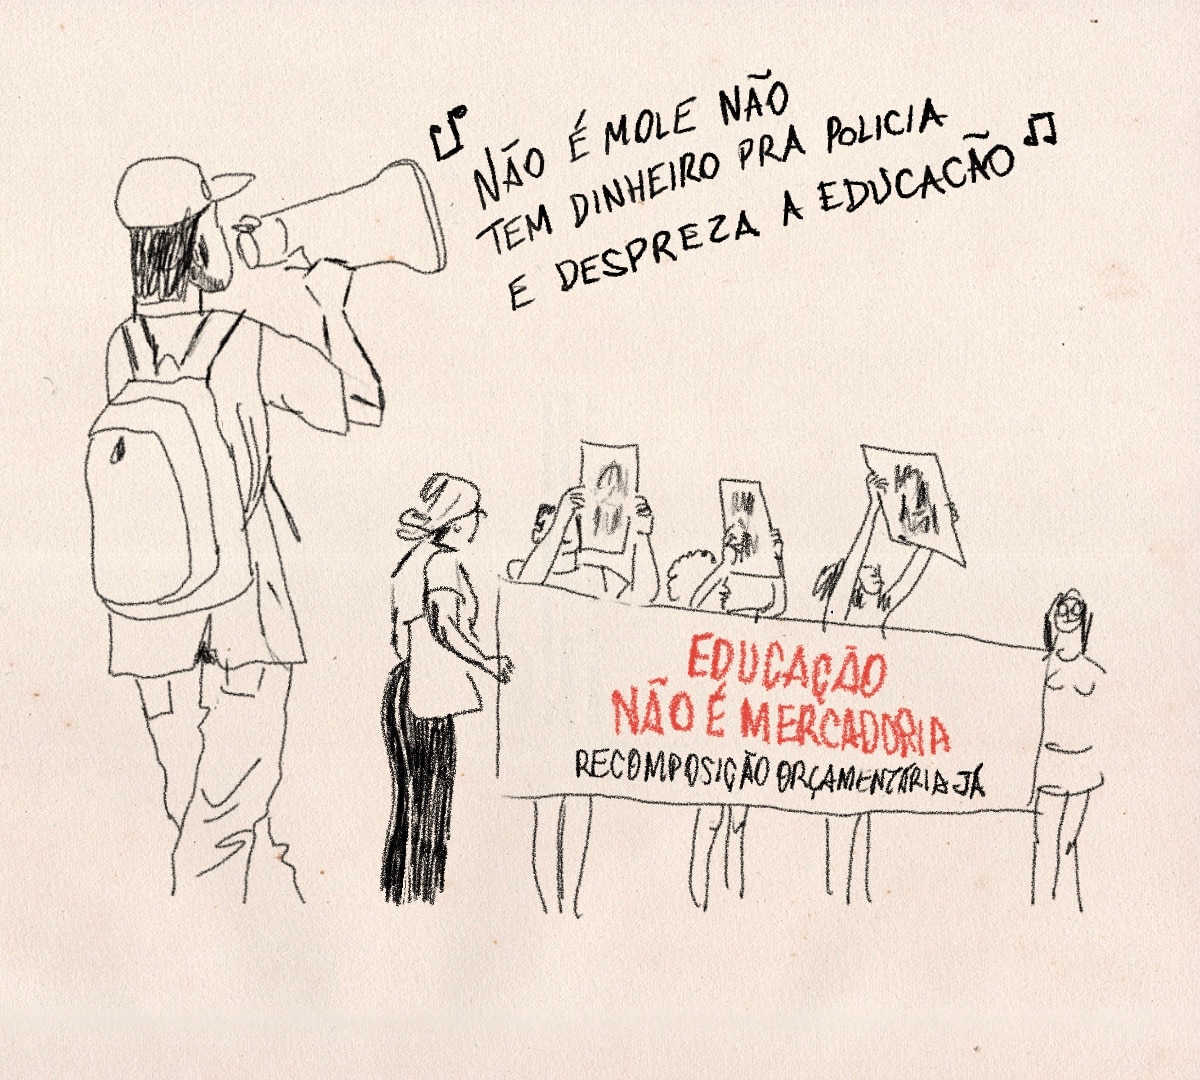 NÃO É MOLE NÃO
TEM DINHEIRO PRA POLICIA
E DESPREZA A EDUCACÃO
EDUCAÇÃO
NÃO É MERCADORIA
RECOMPOSIÇÃO ORÇAMENTÁRIA JÁ